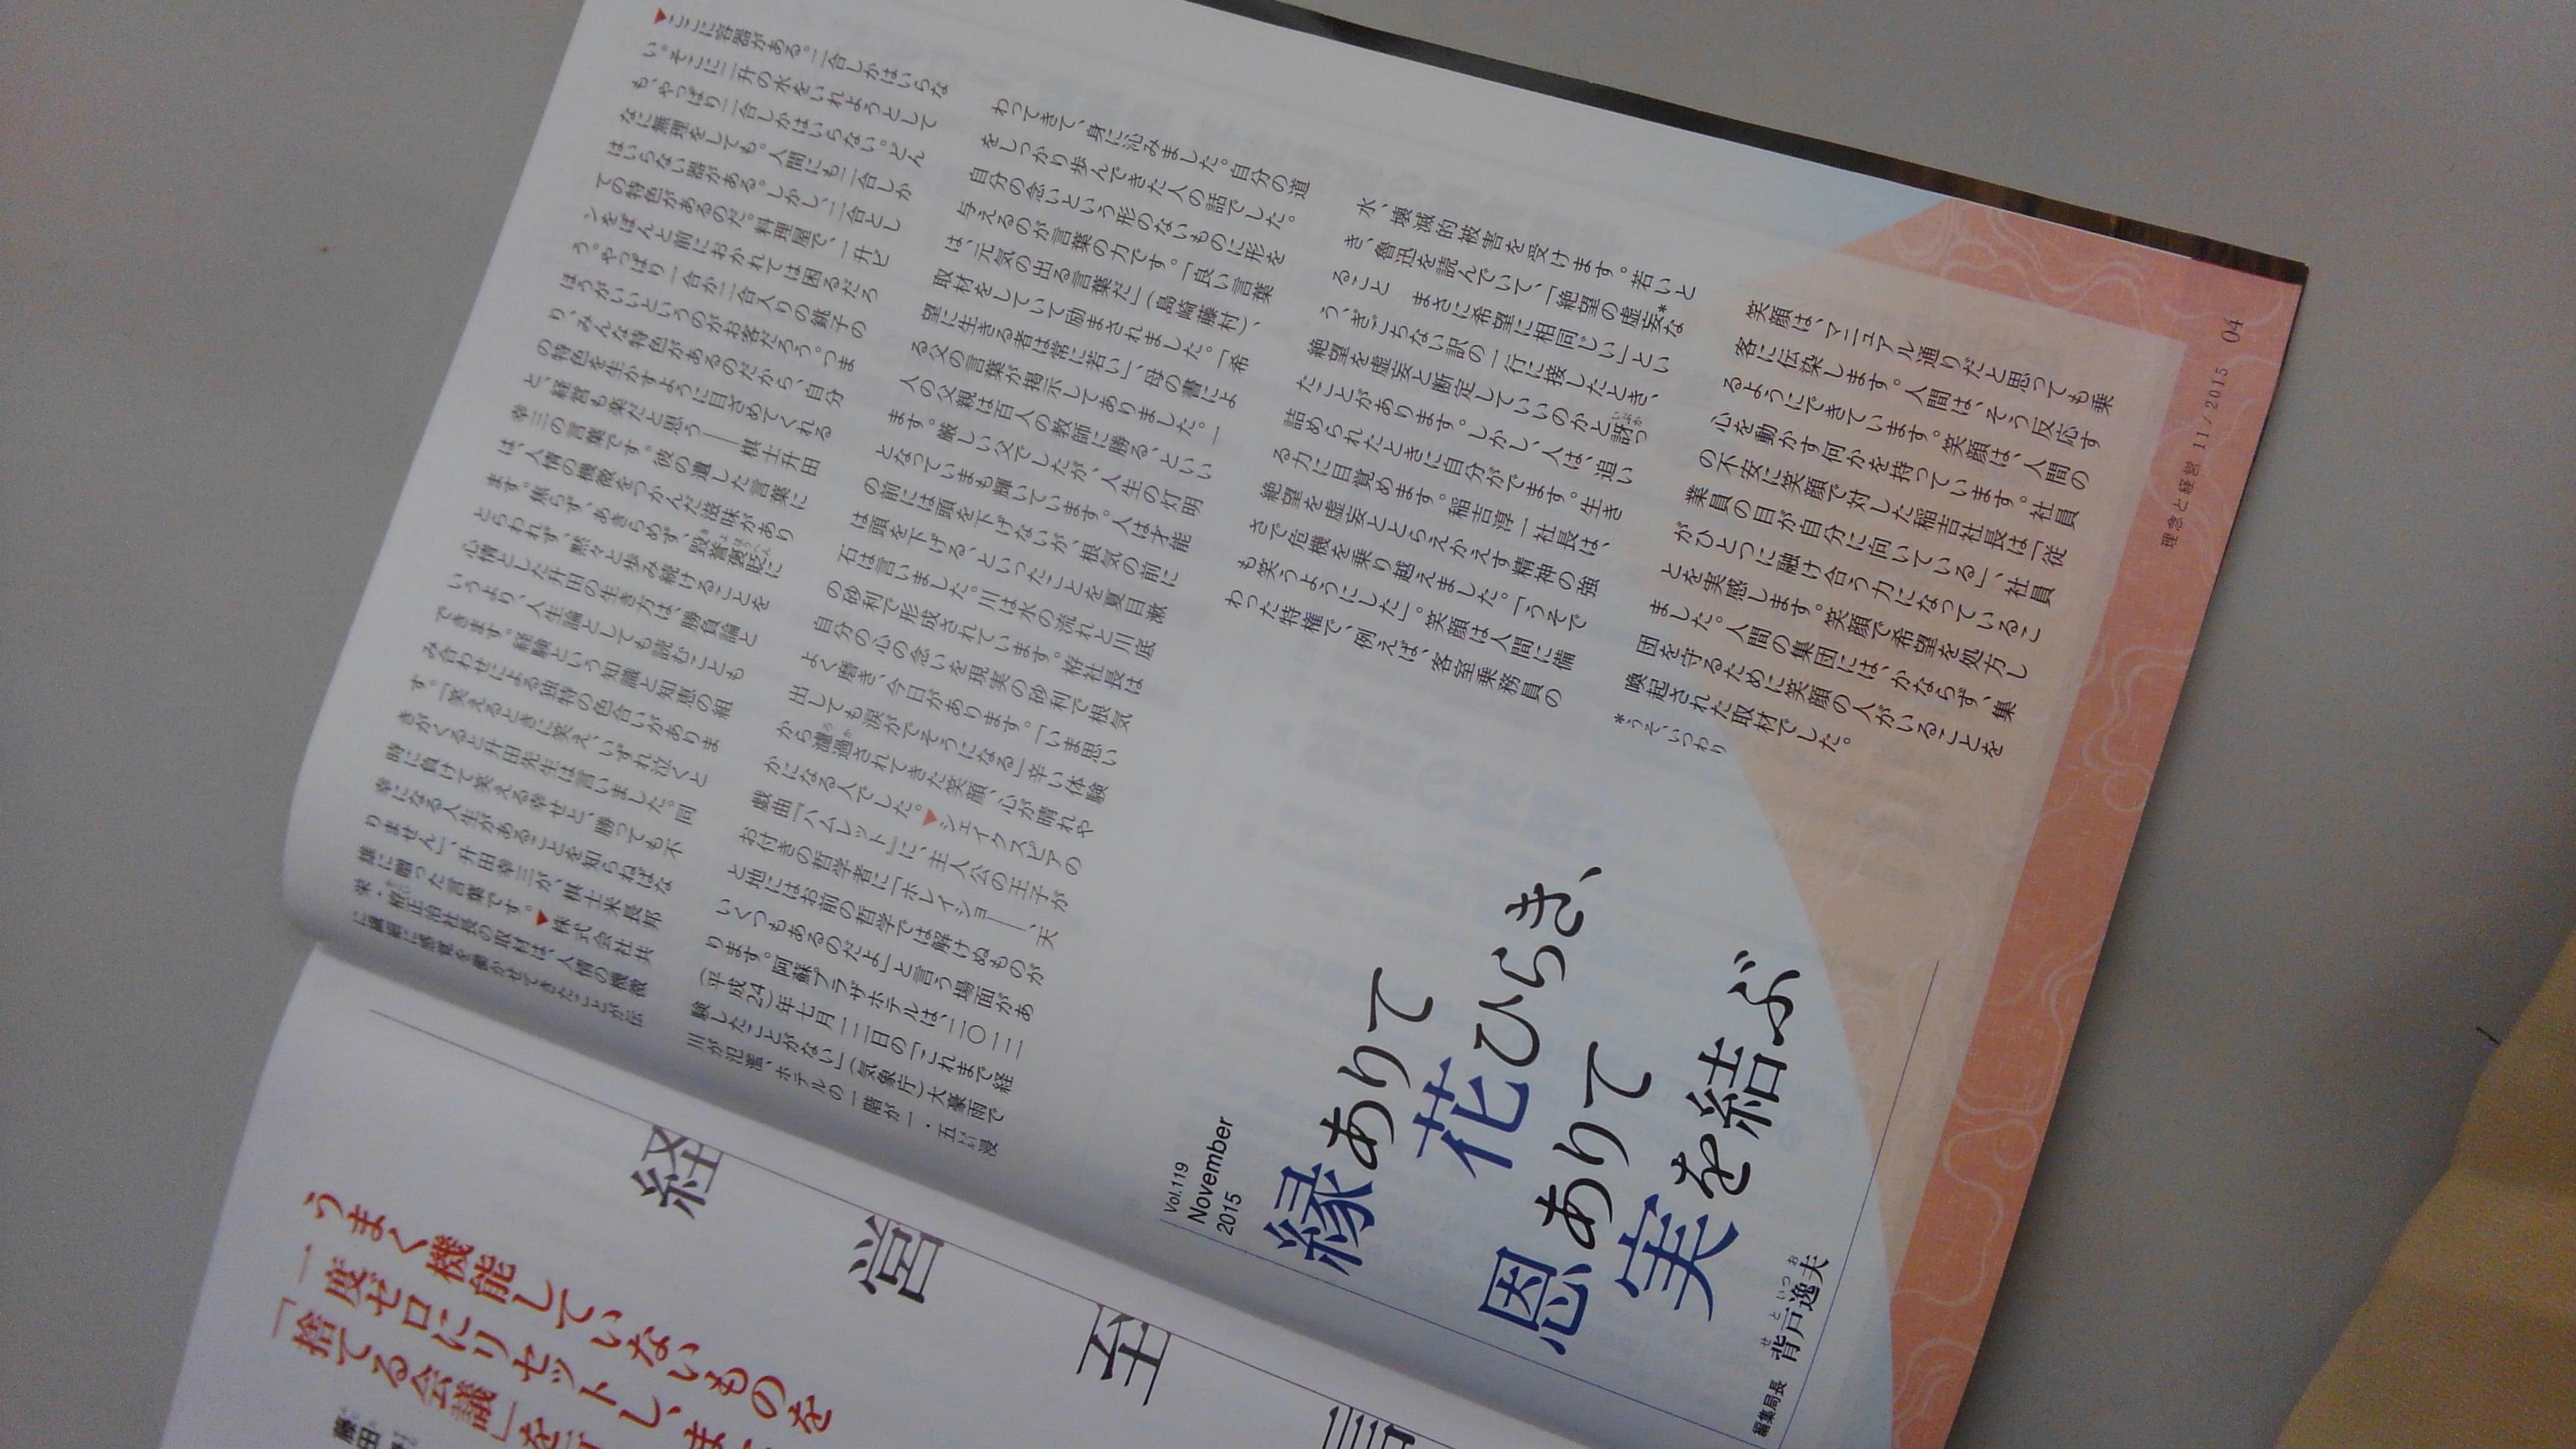 Vol.119
November
2015
縁ありて
花ひらき、
恩ありて
実を結ぶ
編集局長 背戸逸夫
せと いつお
▶ここに容器がある。二合しかはいらな
い。そこに一升の水をいれようとして
も、やっぱり二合しかはいらない。どん
なに無理をしても。人間にも二合しか
はいらない器がある。しかし、二合とし
ての特色があるのだ。料理屋で、一升ビ
ンをぽんと前におかれては困るだろ
う。やっぱり一合か二合入りの銚子の
ほうがいいというのがお客だろう。つま
り、みんな特色があるのだから、自分
の特色を生かすように目ざめてくれる
と、経営も楽だと思う――棋士升田
幸三の言葉です。彼の遺した言葉に
は、人情の機微をつかんだ滋味があり
ます。焦らず、あきらめず、毀誉褒貶に
とらわれず、黙々と歩み続けることを
心情とした升田の生き方は、勝負論と
いうより、人生論としても読むことも
できます。経験という知識と知恵の組
み合わせによる独特の色合いがありま
す。「笑えるときに笑え、いずれ泣くと
きがくると升田先生は言いました。同
時に負けて笑える幸せと、勝っても不
幸になる人生があることを知らねばな
りません」、升田幸三が、棋士米長邦
雄に贈った言葉です。▶株式会社共
栄・
正治社長の取材は、人情の機微
に繊細に感覚を働かせてきたことが伝
わってきて、身に沁みました。自分の道
をしっかり歩んできた人の話でした。
自分の念いという形のないものに形を
与えるのが言葉の力です。「良い言葉
は、元気の出る言葉だ」(島崎藤村)、
取材をしていて励まされました。「希
望に生きる者は常に若い」、母の書によ
る父の言葉が掲示してありました。一
人の父親は百人の教師に勝る、といい
ます。厳しい父でしたが、人生の灯明
となっていまも輝いています。人は才能
の前には頭を下げないが、根気の前に
は頭を下げる、といったことを夏目漱
石は言いました。川は水の流れと川底
の砂利で形成されています。
社長は
自分の心の念いを現実の砂利で根気
よく磨き、今日があります。「いま思い
出しても涙がでそうになる」辛い体験
から濾過されてきた笑顔、心が晴れや
かになる人でした。▶シェイクスピアの
戯曲『ハムレット』に、主人公の王子が
お付きの哲学者に「ホレイショー、天
と地にはお前の哲学では解けぬものが
いくつもあるのだよ」と言う場面があ
ります。阿蘇プラザホテルは、二〇一二
(平成24)年七月一二日の「これまで経
験したことがない」(気象庁)大豪雨で
川が氾濫、ホテルの一階が一・五㍍浸
水、壊滅的被害を受けます。若いと
き、魯迅を読んでいて、「絶望の虚妄*な
ること まさに希望に相同じい」とい
う、ぎこちない訳の一行に接したとき、
絶望を虚妄と断定していいのかと訝っ
たことがあります。しかし、人は、追い
詰められたときに自分がでます。生き
る力に目覚めます。稲吉淳一社長は、
絶望を虚妄ととらえかえす精神の強
さで危機を乗り越えました。「うそで
も笑うようにした」。笑顔は人間に備
わった特権で、例えば、客室乗務員の
笑顔は、マニュアル通りだと思っても乗
客に伝染します。人間は、そう反応す
るようにできています。笑顔は、人間の
心を動かす何かを持っています。社員
の不安に笑顔で対した稲吉社長は「従
業員の目が自分に向いている」、社員
がひとつに融け合う力になっているこ
とを実感します。笑顔で希望を処方し
ました。人間の集団には、かならず、集
団を守るために笑顔の人がいることを
喚起された取材でした。
*うそ、いつわり
理念と経営 11/2015 04
経営
至言
うまく機能していないものを
一度ゼロにリセットし、
「捨てる会議」を